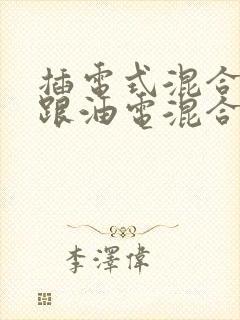 插電式混合
跟油電混合
李澤偉